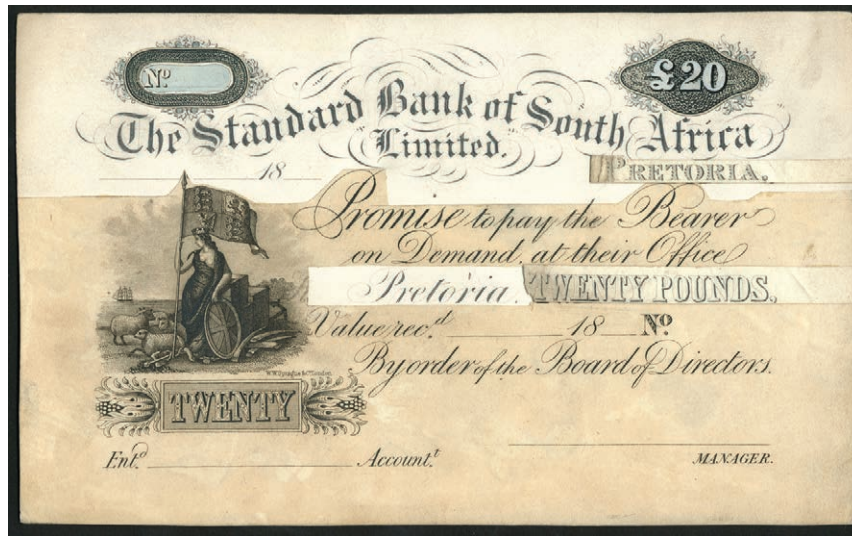 Nº
£20
The Standard Bank of South Africa
"Limited."
18
PRETORIA,
Promise to pay the Bearer
on Demand, at their Office
Pretoria, TWENTY POUNDS,
Value rec.d 18 Nº
By order of the Board of Directors.
W.W. Sprague & Co. London
TWENTY
Ent.d Account.t MANAGER.